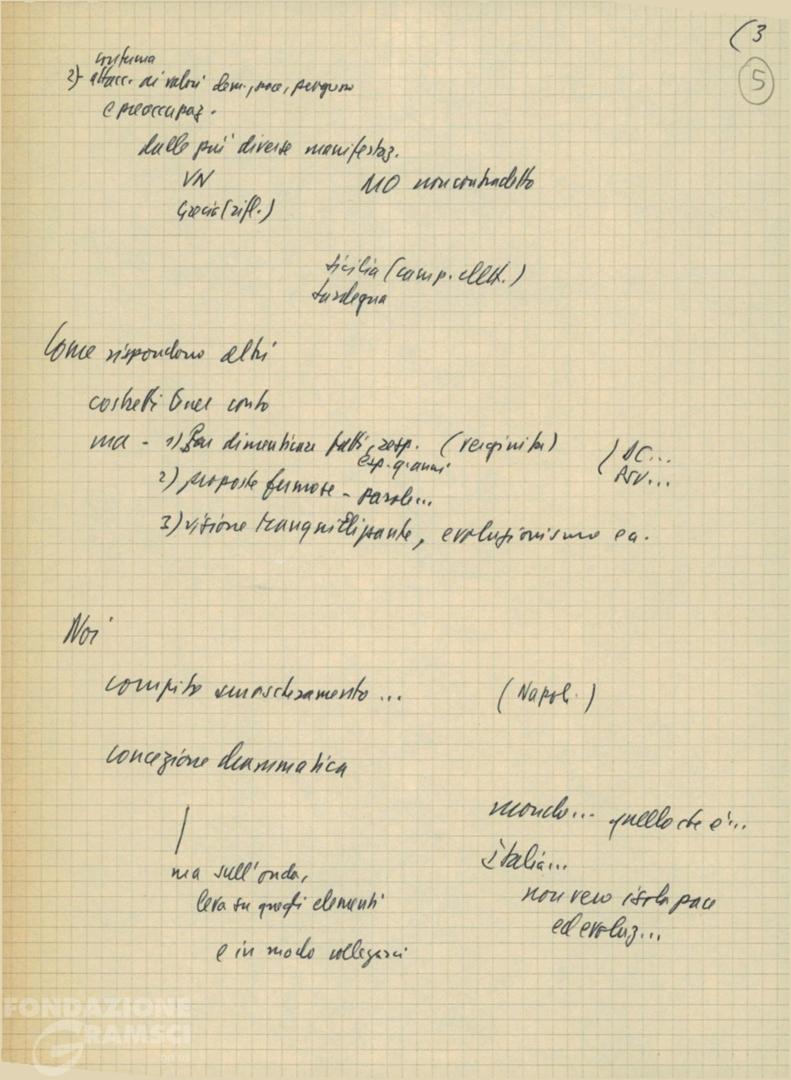 (3
5
conferma
2) attacc. ai valori dem., pace, perquan
e preoccupaz.
dalle più diverse manifestaz.
VN MO non contradetto
Grecia (rifl.)
Sicilia (camp. elett.)
Sardegna
Come rispondono altri
costretti tener conto
ma - 1) Far dimenticare fatti, resp. (verginità) (DC...
esp. q. anni PSU...
2) proposte fumose - parole...
3) visione tranquillizzante, evoluzionismo ea.
Noi
compito smascheramento... (Napoli.)
concezione drammatica
mondo... quello che è...
Italia...
ma sull'onda, non vero isola pace
leva su questi elementi ed evoluz...
e in modo collegarci
FONDAZIONE
GRAMSCI